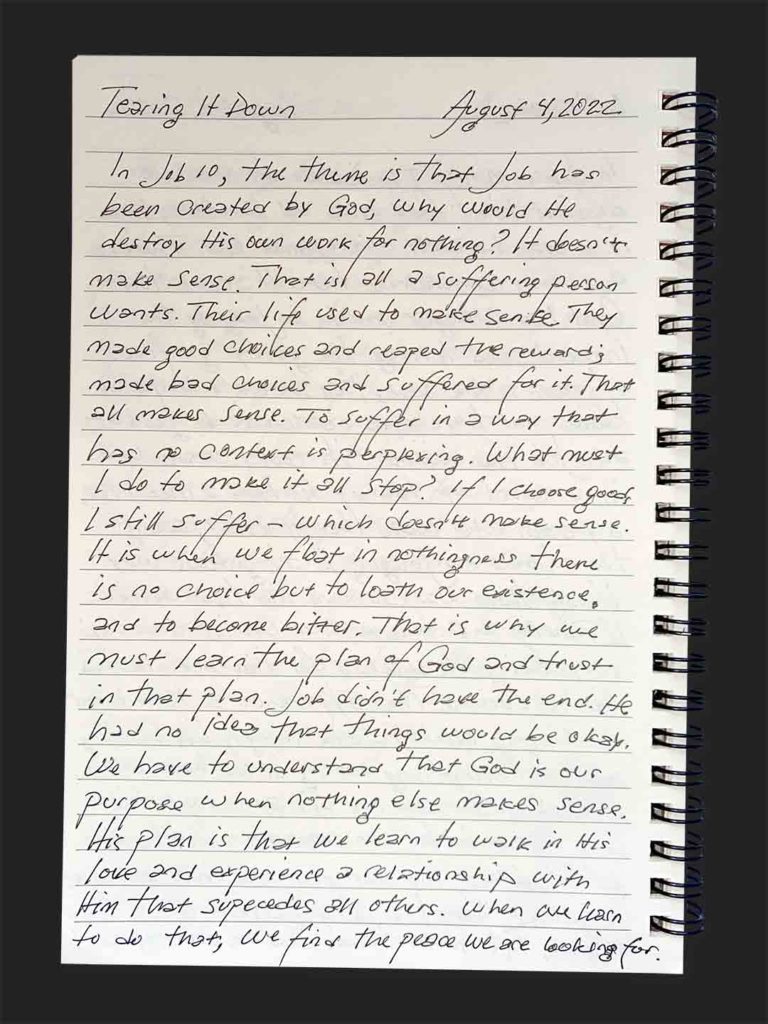 Tearing It Down August 4, 2022
In Job 10, the theme is that Job has
been created by God, why would He
destroy His own work for nothing? It doesn't
make sense. That is all a suffering person
wants. Their life used to make sense. They
made good choices and reaped the reward;
made bad choices and suffered for it. That
all makes sense. To suffer in a way that
has no context is perplexing. What must
I do to make it all stop? If I choose good,
I still suffer - which doesn't make sense.
It is when we float in nothingness there
is no choice but to loath our existence.
and to become bitter. That is why we
must learn the plan of God and trust
in that plan. Job didn't have the end. He
had no idea that things would be okay.
We have to understand that God is our
purpose when nothing else makes sense.
His plan is that we learn to walk in His
love and experience a relationship with
Him that supecedes all others. When we learn
to do that, we find the peace we are looking for.